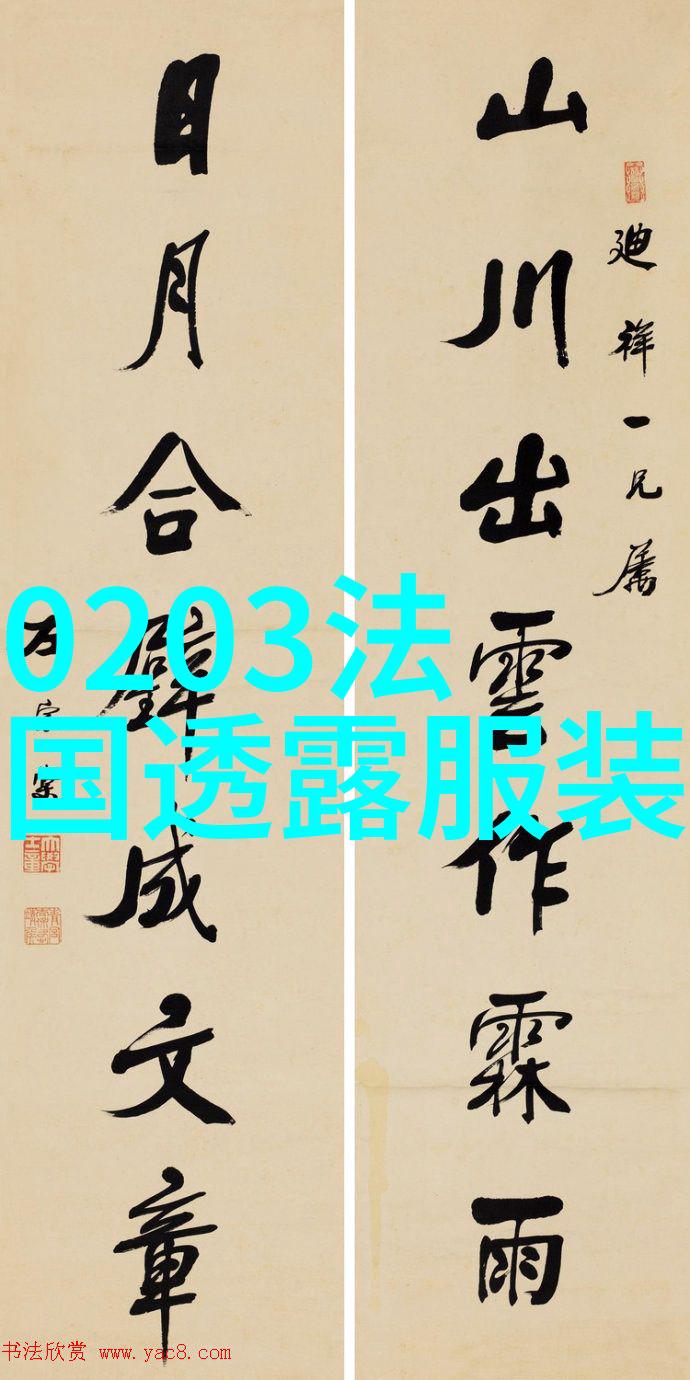 山川出雲作霖雨
廸祥一兄属
日月合璧成文章
0203法
国透露服装
书法欣赏 www.yac8.com